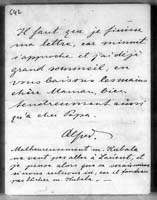 642
Il faut que je finisse
ma lettre, car minuit
s'approche et j'ai déjà
grand sommeil, en
vous baisons les mains
chère Maman, bien
tendrement ainsi
qu'à cher Papa.
Alfred.
Malheureusement m. Kubala
ne veut pas aller à
je pense alors que ce
si nous
pas lâcher m. Kubala. –